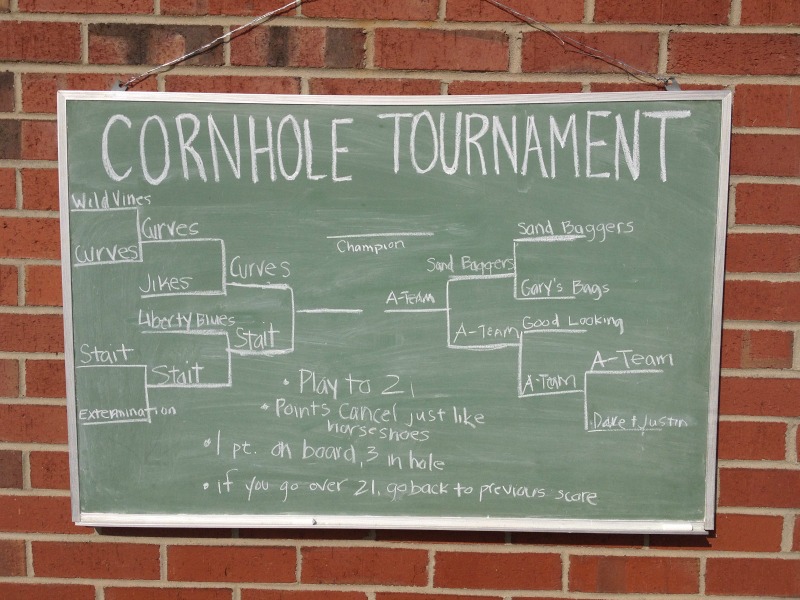 CORNHOLE TOURNAMENT
Wild Vines
Curves
Curves
Jikes
Curves
Liberty Blues
Stait
Stait
Stait
Extermination
Champion
A-Team
Sand Baggers
Sand Baggers
Gary's Bags
A-Team
Good Looking
A-Team
A-Team
Dave + Justin
• Play to 21
• Points Cancel just like
horseshoes
• 1 pt. on board, 3 in hole
• if you go over 21, go back to previous score